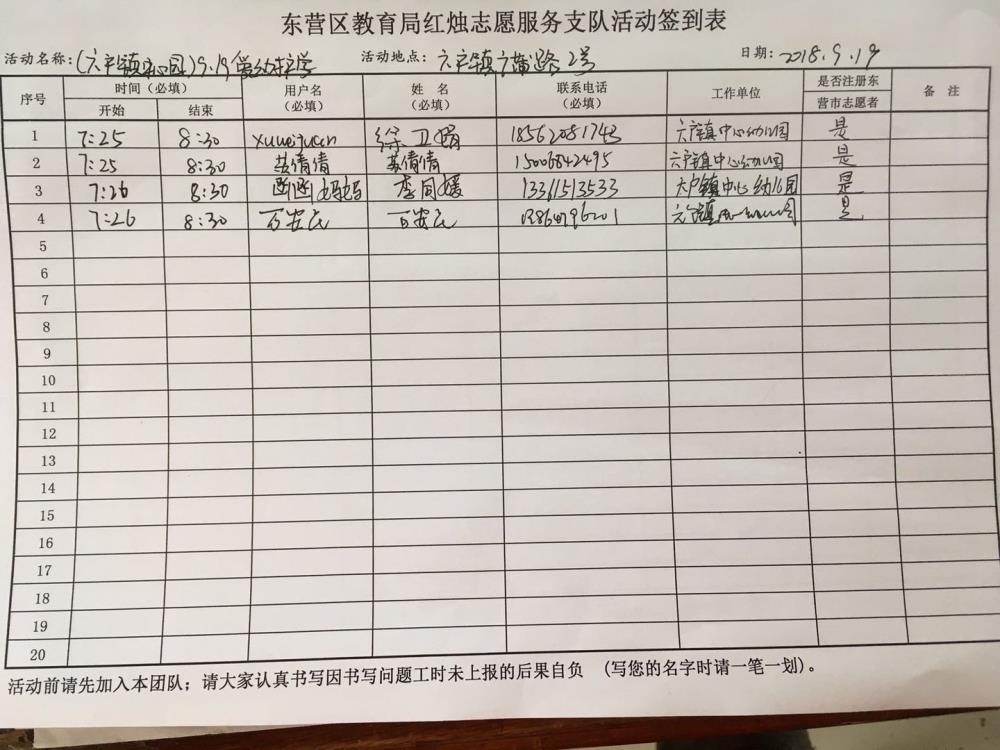 东营区教育局红烛志愿服务支队活动签到表
活动名称：(六户镇中心园)9.19 幼护学 活动地点：六户镇广蒲路2号 日期：2018.9.19
序号 时间（必填） 用户名（必填） 姓 名（必填） 联系电话（必填） 工作单位 是否注册东营市志愿者 备 注
开始 结束
1 7:25 8:30 xuweijuan 徐卫娟 18562081743 六户镇中心幼儿园 是
2 7:25 8:30 苏倩倩 苏倩倩 15006842495 六户镇中心幼儿园 是
3 7:26 8:30 函函妈妈 李同媛 13361513533 六户镇中心幼儿园 是
4 7:26 8:30 六户镇 是
5
6
7
8
9
10
11
12
13
14
15
16
17
18
19
20
活动前请先加入本团队；请大家认真书写因书写问题工时未上报的后果自负 （写您的名字时请一笔一划）。